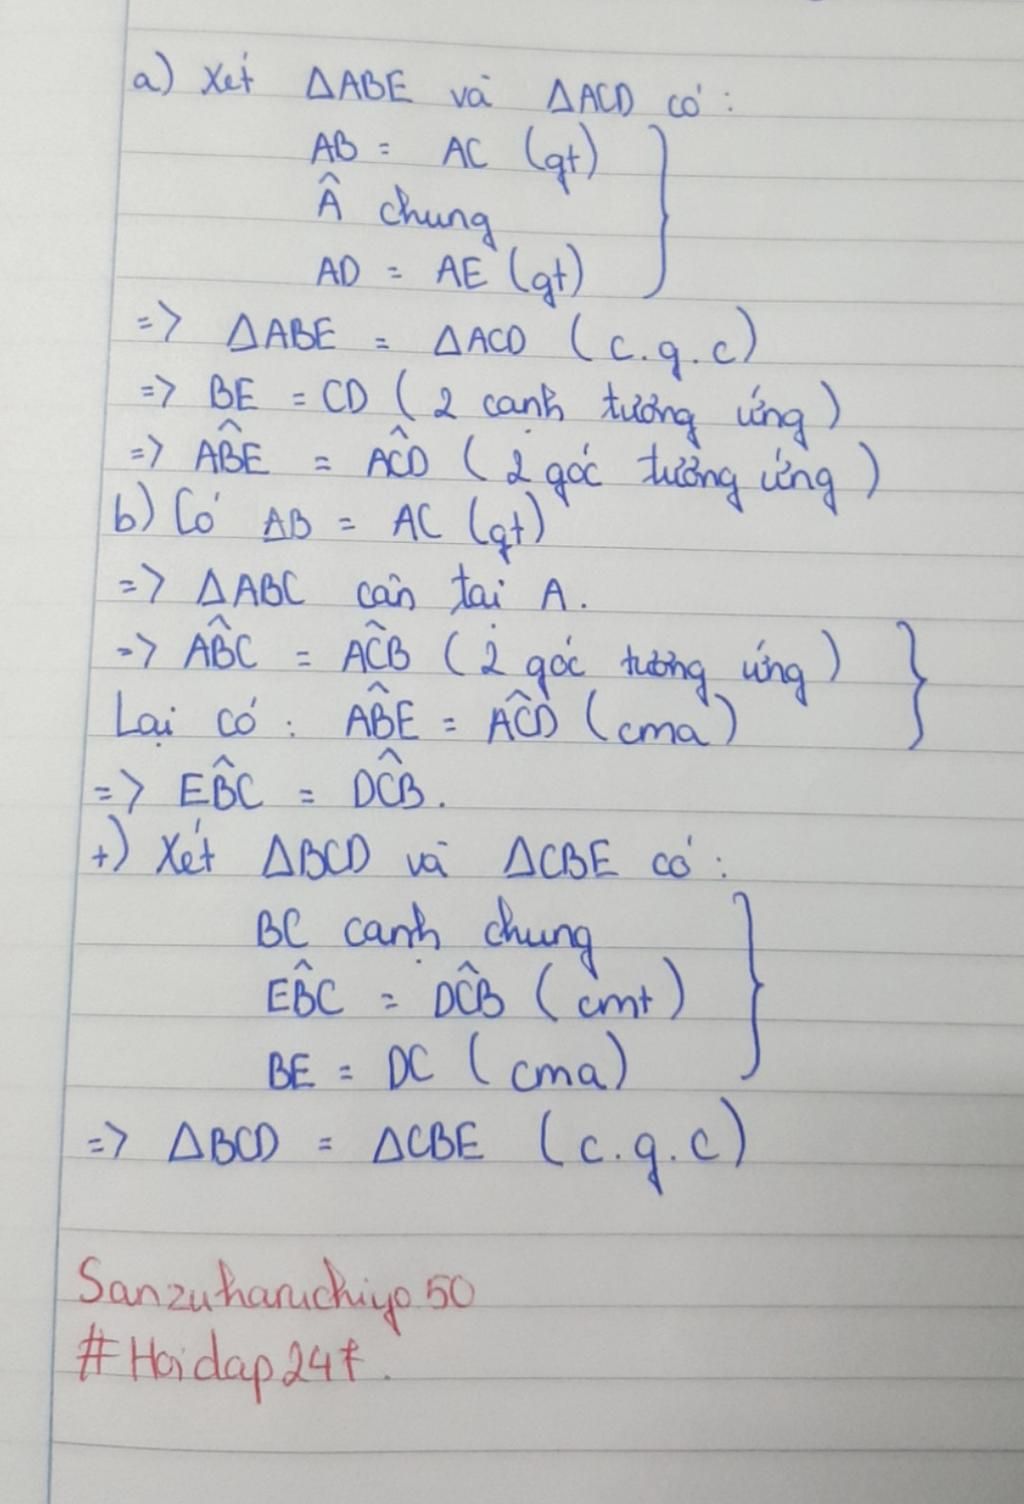 a) Xét ΔABE và ΔACD có :
AB = AC (gt)
Â chung
AD = AE (gt)
=> ΔABE = ΔACD (c.g.c)
=> BE = CD (2 cạnh tương ứng)
=> AB̂E = AĈD (2 góc tương ứng)
b) Có AB = AC (gt)
=> ΔABC cân tại A.
=> AB̂C = AĈB (2 góc tương ứng)
Lại có : AB̂E = AĈD (cma)
=> EB̂C = DĈB.
+) Xét ΔBCD và ΔCBE có :
BC cạnh chung
EB̂C = DĈB (cmt)
BE = DC (cma)
=> ΔBCD = ΔCBE (c.g.c)
Sanzuharuchiyo50
#Hoidap247.